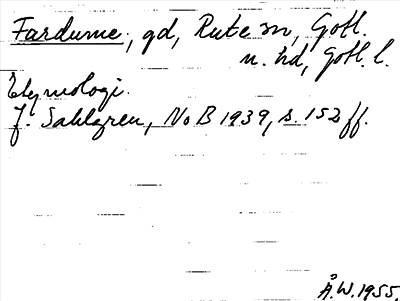 Fardume, gd, Rute sn, Gotl.
n. hd, Gotl. l.
Etymologi.
J. Sahlgren, NoB 1939, s. 152 ff.
Å.W. 1955.